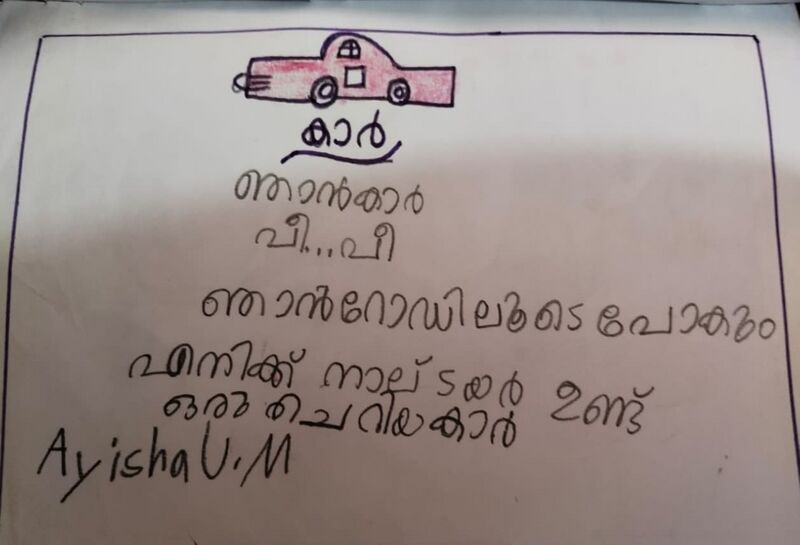 കാർ
ഞാൻകാർ
പീ...പീ
ഞാൻറോഡിലൂടെ പോകും
എനിക്ക് നാല് ടയർ ഉണ്ട്
ഒരു ചെറിയകാർ
Ayisha U.M